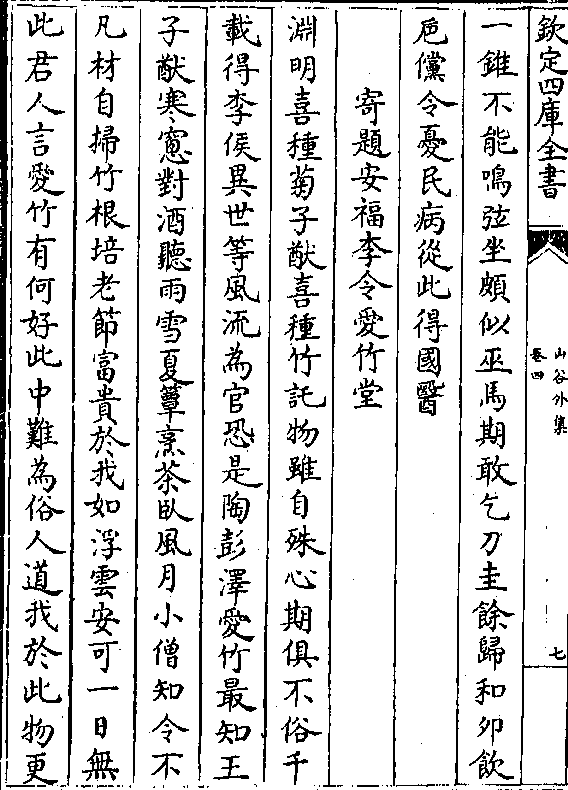 欽定四庫全書
山谷外集
卷四
七
一錐不能鳴弦坐頗似巫馬期敢乞刀圭餘歸和卯飲
巵儻令憂民病從此得國醫
寄題安福李令愛竹堂
淵明喜種菊子猷喜種竹託物雖自殊心期俱不俗千
載得李侯異世等風流為官恐是陶彭澤愛竹最知王
子猷寒窻對酒聽雨雪夏簟烹茶臥風月小僧知令不
凡材自掃竹根培老節富貴於我如浮雲安可一日無
此君人言愛竹有何好此中難為俗人道我於此物更